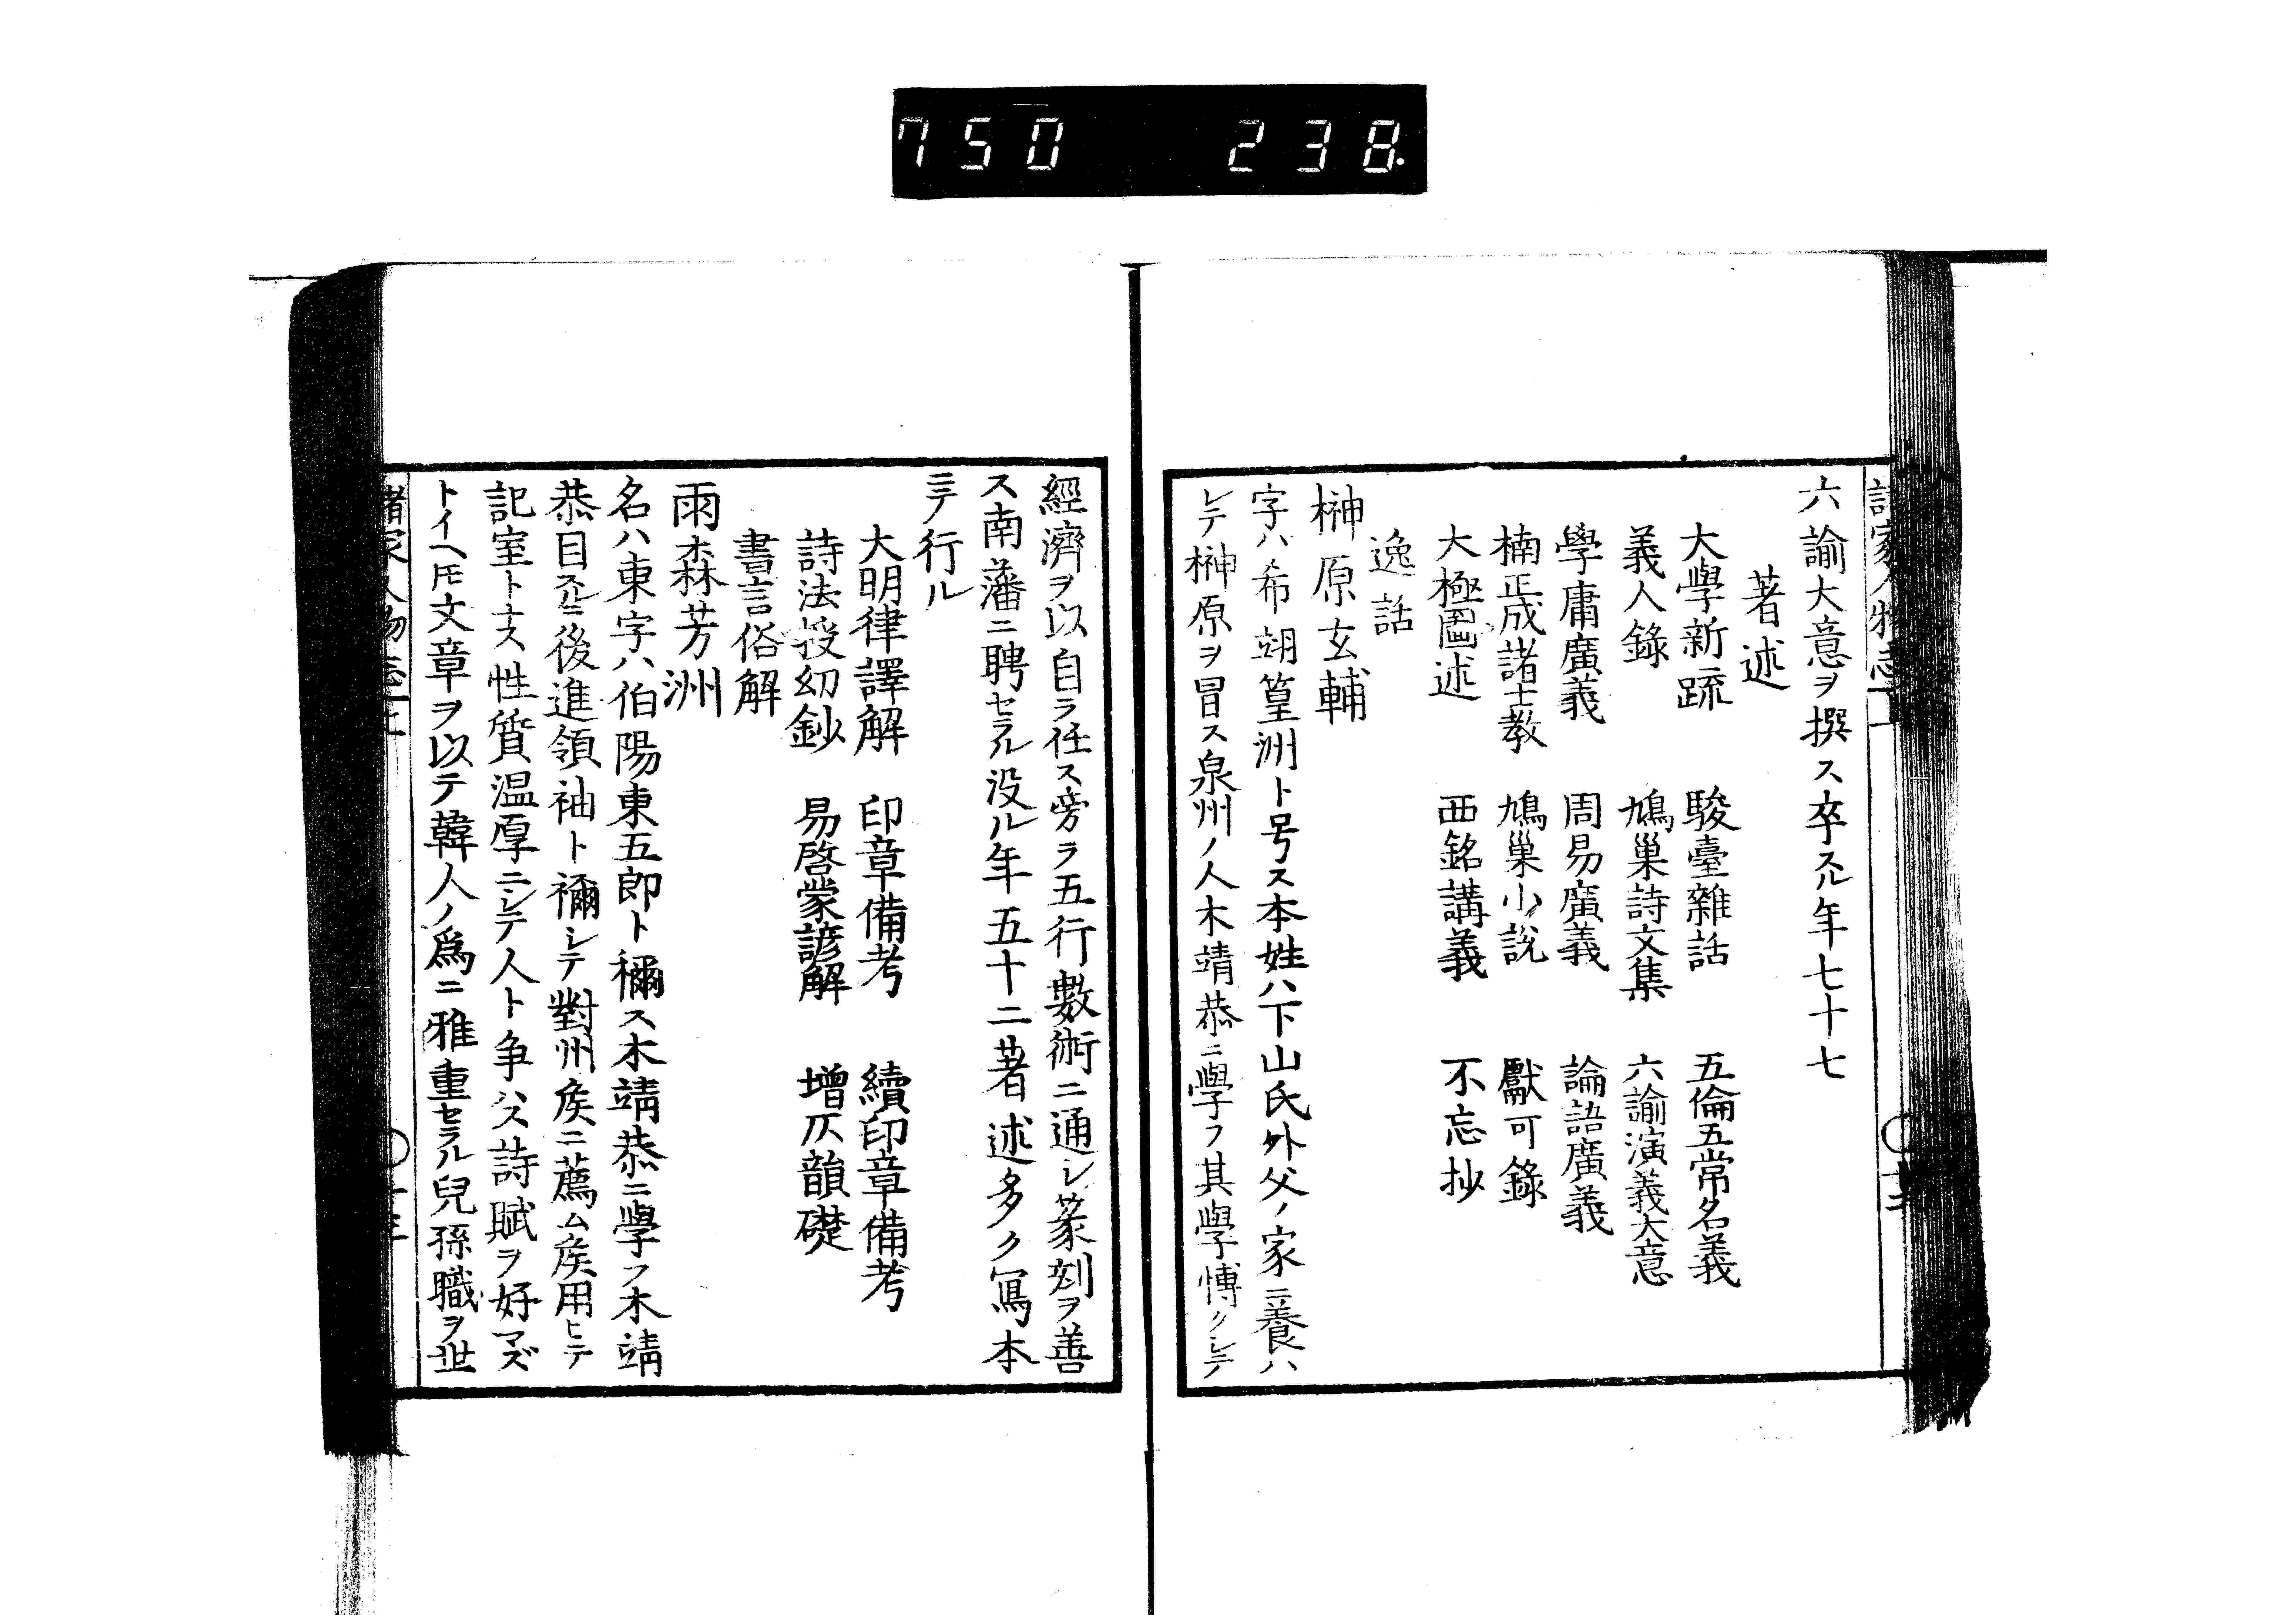 750 238.
六諭大意ヲ撰ス卒スル年七十七
著述
大學新疏 駿臺雜話 五倫五常名義
義人錄 鳩巢詩文集 六諭演義大意
學庸廣義 周易廣義 論語廣義
楠正成諸士教 鳩巢小説 獻可錄
大極圖述 西銘講義 不忘抄
逸話
榊原玄輔
字ハ希翊篁洲ト号ス本姓ハ下山氏外父ノ家ニ養ハ
レテ榊原ヲ冒ス泉州ノ人木靖恭ニ學フ其學愽クシテ
經濟ヲ以自ラ任ス旁ラ五行數術ニ通シ篆刻ヲ善
ス南藩ニ聘セラル没ル年五十二著述多ク寫本
ニテ行ル
大明律譯解 印章備考 續印章備考
詩法授幼鈔 易啓蒙諺解 增仄韻礎
書言俗解
雨森芳洲
名ハ東字ハ伯陽東五郎ト稱ス木靖恭ニ學フ木靖
恭目スルニ後進領袖ト稱シテ對州矦ニ薦ム矦用ヒテ
記室トナス性質温厚ニシテ人ト争ハス詩賦ヲ好マズ
トイヘトモ文章ヲ以テ韓人ノ爲ニ雅重セラル兒孫職ヲ世
諸家人物志上